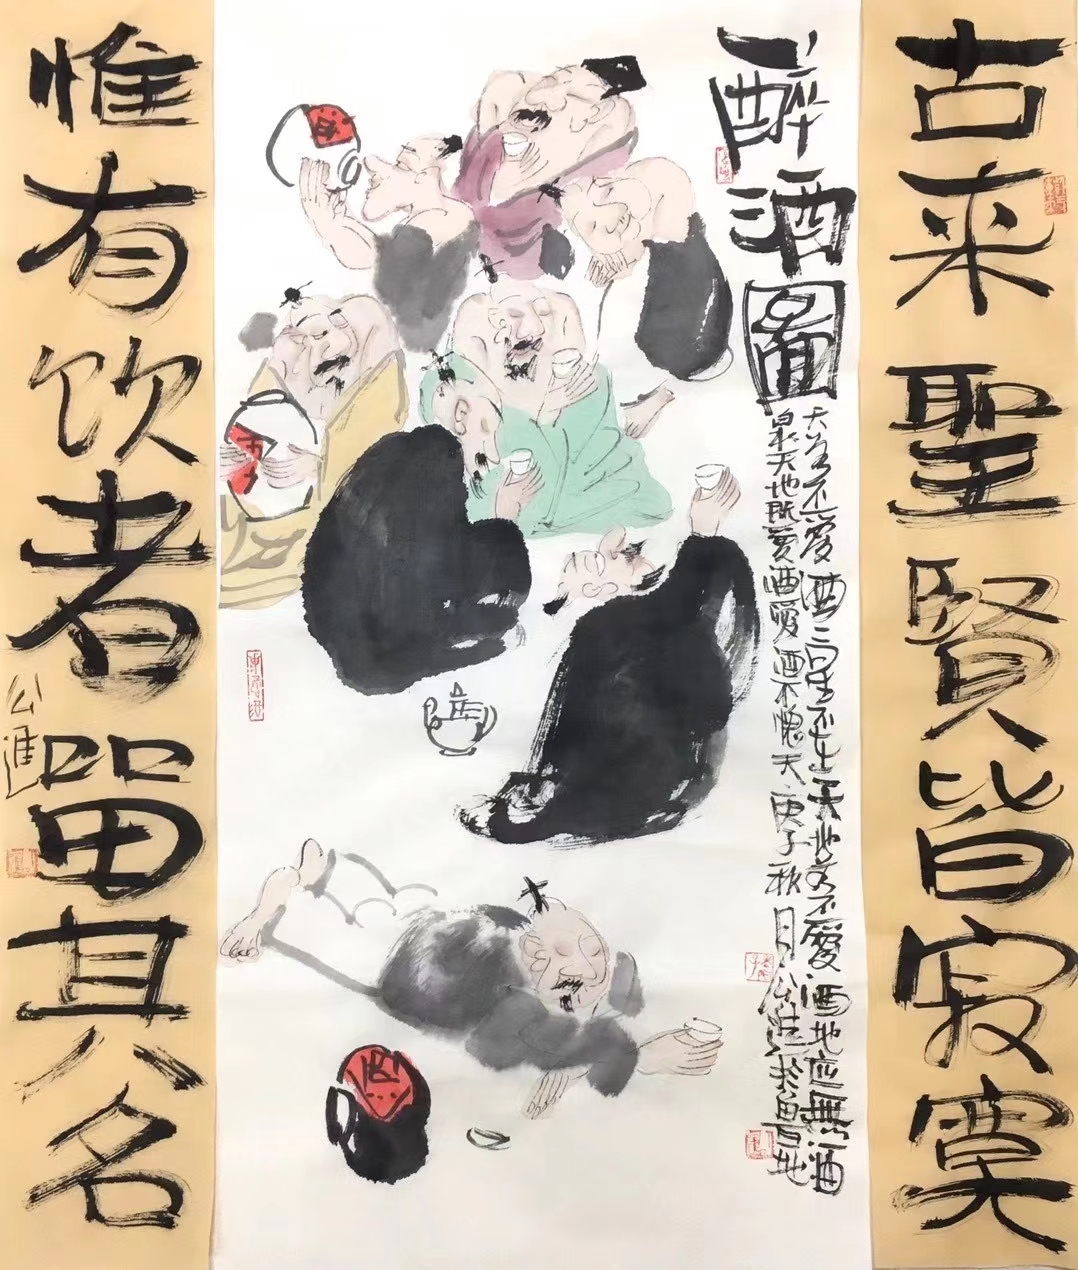 古来聖賢皆寂寞
醉酒圖
天若不爱酒二星不在天地若不爱酒地应無酒
泉天地既爱酒爱酒不愧天庚子秋月公進於
惟有饮者留其名
公進